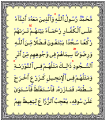 مُّحَمَّدٌ رَّسُولُ ٱللَّهِ وَٱلَّذِينَ مَعَهُۥٓ أَشِدَّآءُ
عَلَى ٱلْكُفَّارِ رُحَمَآءُ بَيْنَهُمْ تَرَىٰهُمْ
رُكَّعًا سُجَّدًا يَبْتَغُونَ فَضْلًا مِّنَ ٱللَّهِ
وَرِضْوَٰنًا سِيمَاهُمْ فِى وُجُوهِهِم مِّنْ أَثَرِ
ٱلسُّجُودِ ذَٰلِكَ مَثَلُهُمْ فِى ٱلتَّوْرَىٰةِ
وَمَثَلُهُمْ فِى ٱلْإِنجِيلِ كَزَرْعٍ أَخْرَجَ
شَطْـَٔهُۥ فَـَٔازَرَهُۥ فَٱسْتَغْلَظَ فَٱسْتَوَىٰ
عَلَىٰ سُوقِهِۦ يُعْجِبُ ٱلزُّرَّاعَ لِيَغِيظَ بِهِمُ